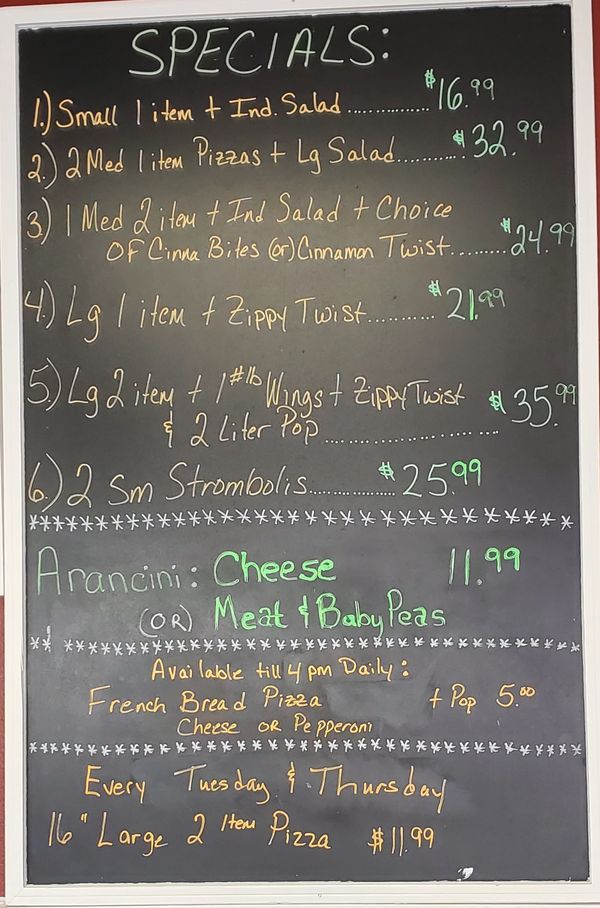 SPECIALS:
1.) Small 1 item + Ind. Salad .............. $16.99
2.) 2 Med 1 item Pizzas + Lg Salad.......... $32.99
3.) 1 Med 2 item + Ind Salad + Choice
OF Cinna Bites (or) Cinnamon Twist......... $24.99
4.) Lg 1 item + Zippy Twist.......... $21.99
5.) Lg 2 item + 1 #lb Wings + Zippy Twist $35.99
& 2 Liter Pop ........................
6.) 2 Sm Strombolis................ $25.99
Arancini: Cheese 11.99
(OR) Meat & Baby Peas
Available till 4 pm Daily:
French Bread Pizza + Pop 5.00
Cheese OR Pepperoni
Every Tuesday & Thursday
16" Large 2 Item Pizza $11.99